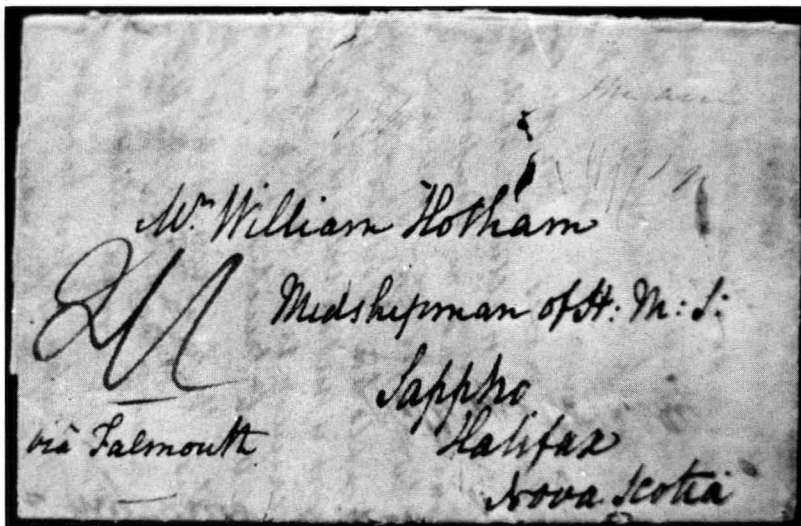 Mr. William Hotham
Midshipman of H: M: S:
Sappho
Halifax
Nova Scotia
2/1
via Falmouth